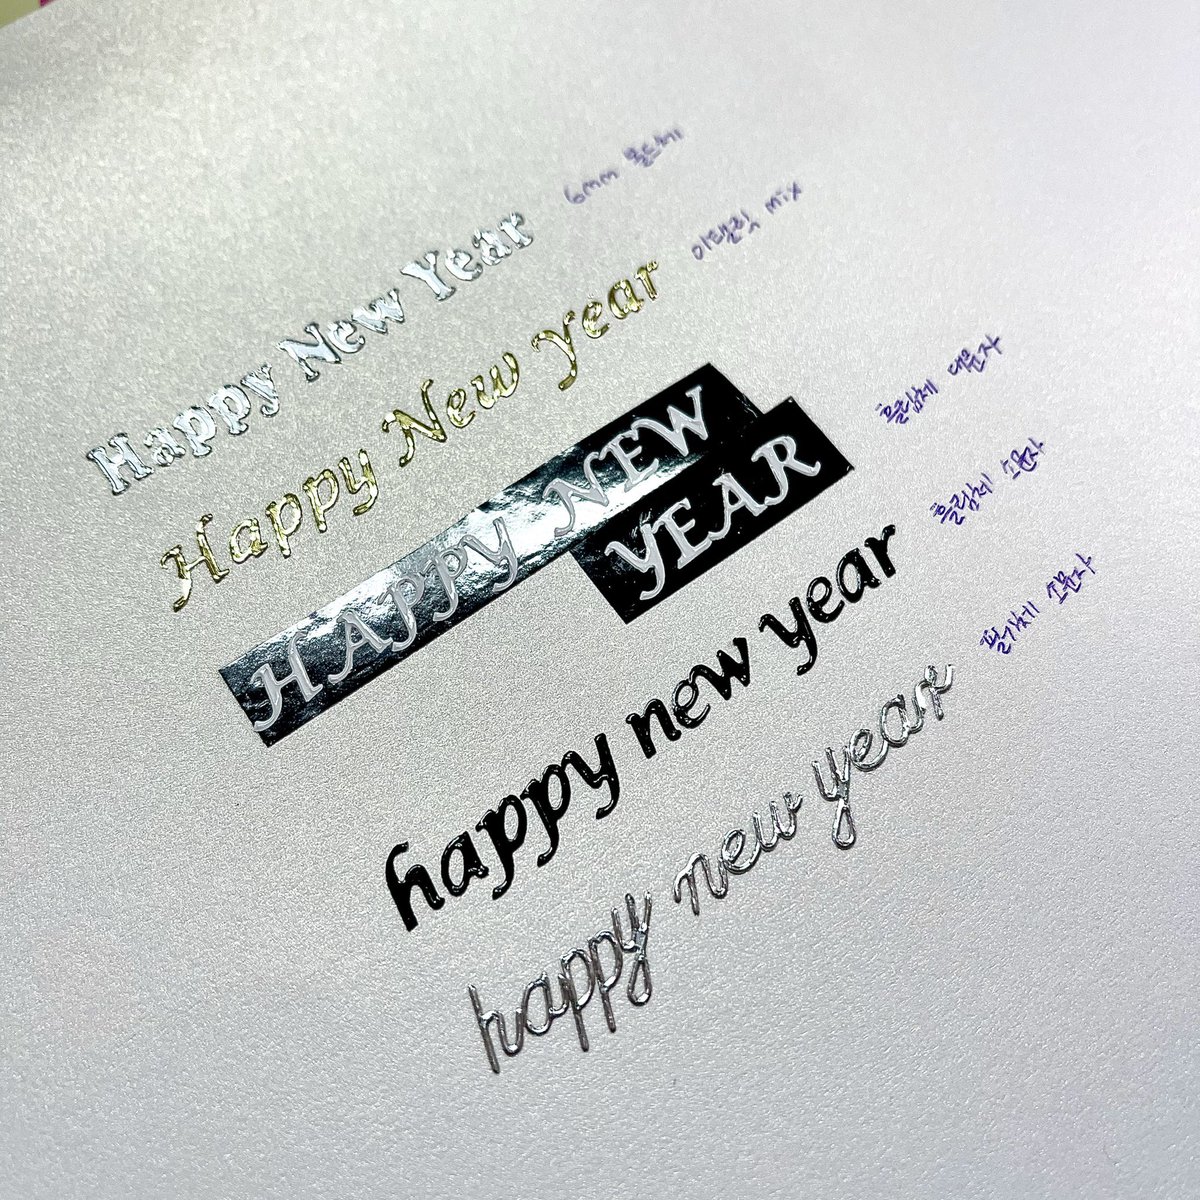 Happy New Year 6mm 볼드체
Happy New Year 이탤릭 mix
HAPPY NEW
YEAR 흘림체 대문자
happy new year 흘림체 소문자
happy new year 필기체 소문자